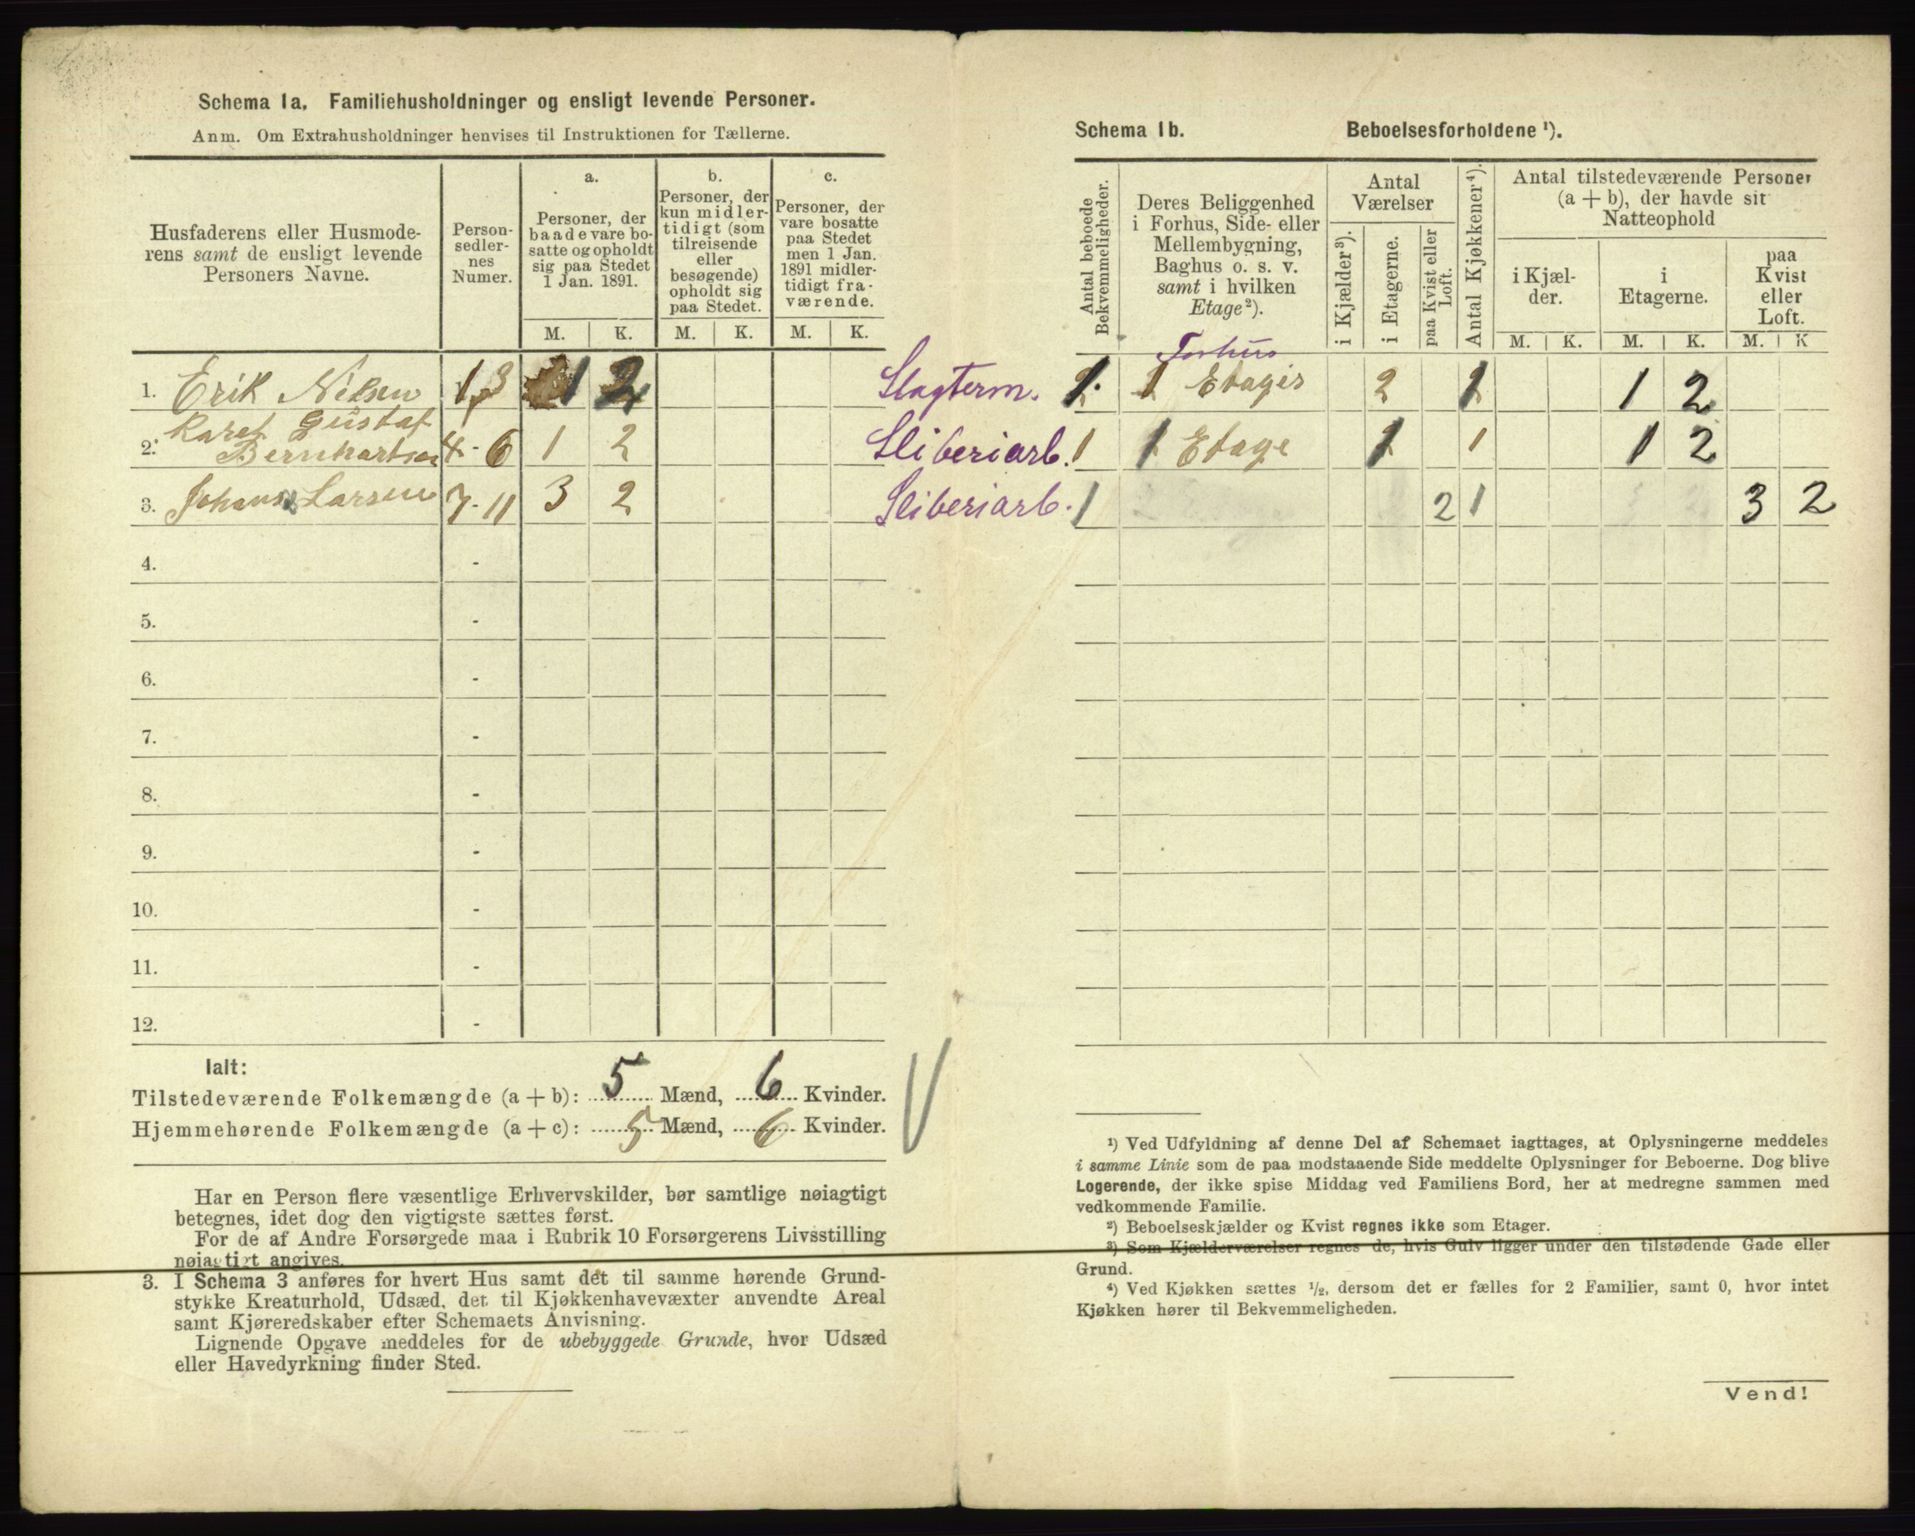 Schema 1a. Familiehusholdninger og ensligt levende Personer.
Anm. Om Extrahusholdninger henvises til Instruktionen for Tællerne.
Husfaderens eller Husmoderens samt de ensligt levende Personers Navne.
Person-sedlernes Numer.
a.
Personer, der baade vare bosatte og opholdt sig paa Stedet 1 Jan. 1891.
b.
Personer, der kun midlertidigt (som tilreisende eller besøgende) opholdt sig paa Stedet.
c.
Personer, der vare bosatte paa Stedet men 1 Jan. 1891 midlertidigt fraværende.
M. K. M. K. M. K.
1. Erik Nilsen 1-3 1 2
2. Karel Gustaf Bernhartsen 4-6 1 2
3. Johans Larsen 7-11 3 2
4. -
5. -
6. -
7. -
8. -
9. -
10. -
11. -
12. -
Ialt:
Tilstedeværende Folkemængde (a + b): 5 Mænd, 6 Kvinder.
Hjemmehørende Folkemængde (a + c): 5 Mænd, 6 Kvinder.
Har en Person flere væsentlige Erhvervskilder, bør samtlige nøiagtigt
betegnes, idet dog den vigtigste sættes først.
For de af Andre Forsørgede maa i Rubrik 10 Forsørgerens Livsstilling
nøiagtigt angives.
3. I Schema 3 anføres for hvert Hus samt det til samme hørende Grund-
stykke Kreaturhold, Udsæd, det til Kjøkkenhavevæxter anvendte Areal
samt Kjøreredskaber efter Schemaets Anvisning.
Lignende Opgave meddeles for de ubebyggede Grunde, hvor Udsæd
eller Havedyrkning finder Sted.
Schema 1b. Beboelsesforholdene ¹).
Antal beboede Bekvemmeligheder.
Deres Beliggenhed i Forhus, Side- eller Mellembygning, Baghus o. s. v. samt i hvilken Etage²).
Antal Værelser
i Kjælder³).
i Etagerne.
paa Kvist eller Loft.
Antal Kjøkkener⁴).
Antal tilstedeværende Personer (a + b), der havde sit Natteophold
i Kjælder.
i Etagerne.
paa Kvist eller Loft.
M. K. M. K. M. K
Forhus
Slagterm. 1 Etages 2 1 2
Sliberiarb. 1 1 Etage 1 1 2
Sliberiarb. 1 2 1 3 2
¹) Ved Udfyldning af denne Del af Schemaet iagttages, at Oplysningerne meddeles
i samme Linie som de paa modstaaende Side meddelte Oplysninger for Beboerne. Dog blive
Logerende, der ikke spise Middag ved Familiens Bord, her at medregne sammen med
vedkommende Familie.
²) Beboelseskjælder og Kvist regnes ikke som Etager.
³) Som Kjælderværelser regnes de, hvis Gulv ligger under den tilstødende Gade eller
Grund.
⁴) Ved Kjøkken sættes ½, dersom det er fælles for 2 Familier, samt 0, hvor intet
Kjøkken hører til Bekvemmeligheden.
Vend!